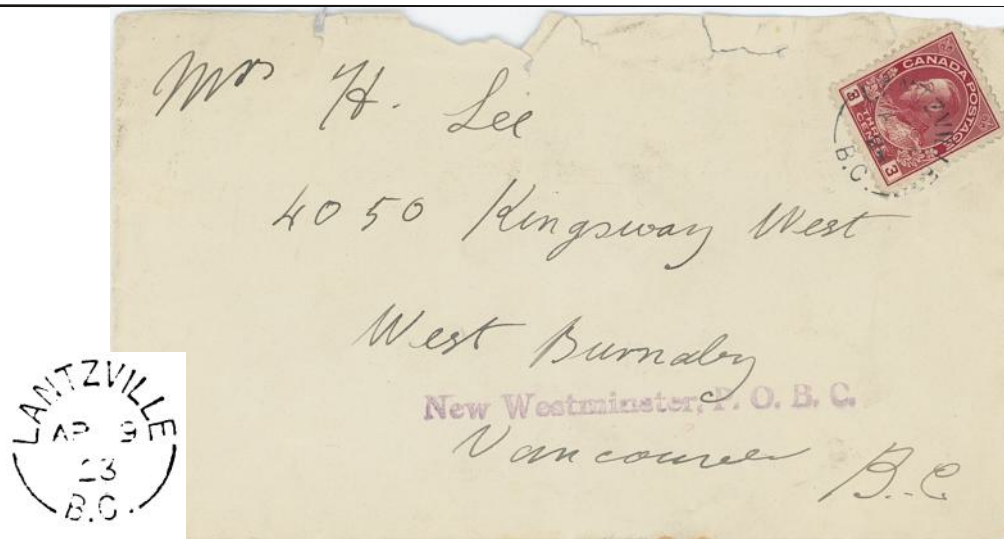 Mrs H. Lee
4050 Kingsway West
West Burnaby
New Westminster, P. O. B. C.
Vancouver B.C
CANADA POSTAGE
3 THREE CENTS 3
B.C.
LANTZVILLE
AP 9
23
B.C.